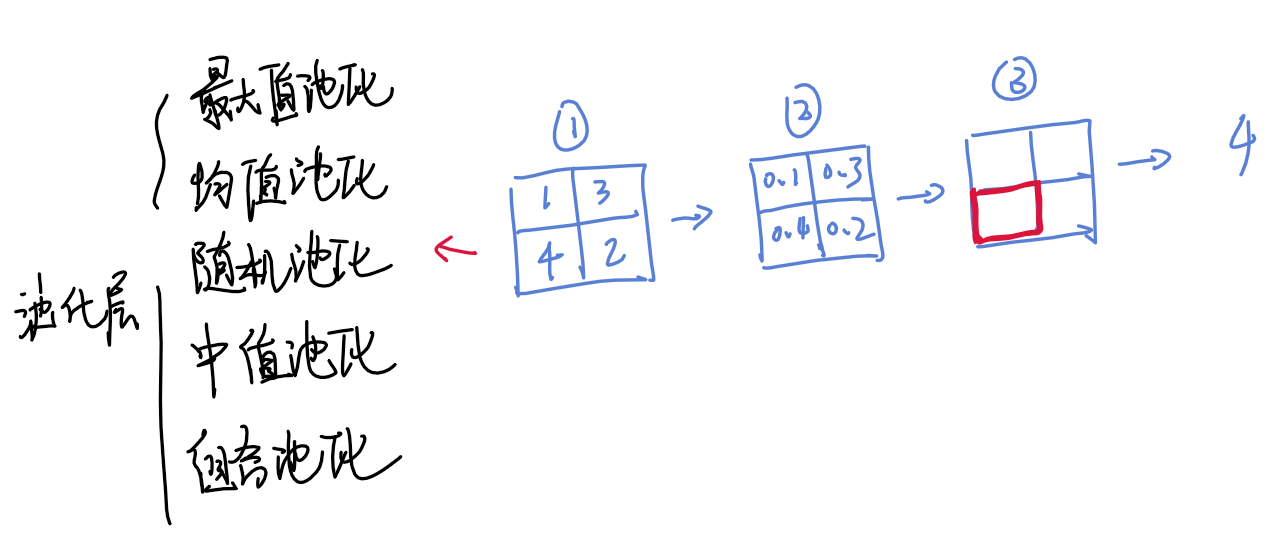 池化层
最大值池化
均值池化
随机池化
中值池化
组合池化
①
1 3
4 2
②
0.1 0.3
0.4 0.2
③
4